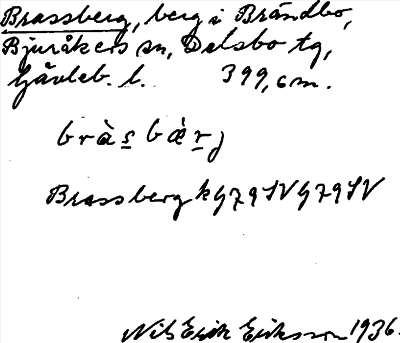 Brassberg, berg i Brändbo,
Bjuråkers sn, Delsbo tg,
Gävleb. l. 399,6 m.
bràs bæ̀rj
Brassberg k G79SV G79SV
Nils Erik Eriksson 1936.